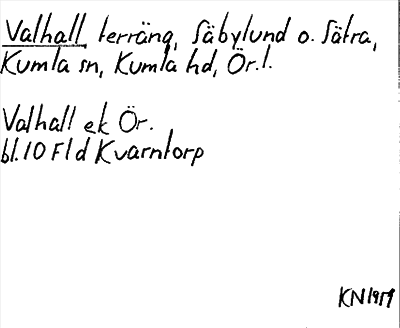 Valhall terräng, Säbylund o. Sätra,
Kumla sn, Kumla hd, Ör. l.
Valhall ek Ör.
bl. 10 F l d Kvarntorp
KN